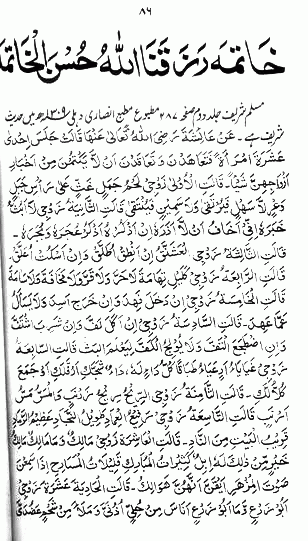 ۸۶
خاتمہ رزقنا اللہ حسن الخاتمة
مسلم شریف جلد دوم صفحہ ۲۸۷ مطبوعہ مطبع انصاری دہلی میں حدیث
شریف ہے۔ عَنْ عَائِشَةَ رَضِيَ اللهُ تَعَالٰى عَنْهَا قَالَتْ جَلَسَ اِحْدٰى
عَشْرَةَ امْرَأَةً فَتَعَاهَدْنَ وَتَعَاقَدْنَ اَنْ لَّا يَكْتُمْنَ مِنْ اَخْبَارِ
اَزْوَاجِهِنَّ شَيْئًا۔ قَالَتِ الْاُوْلٰى زَوْجِيْ لَحْمُ جَمَلٍ غَثٍّ عَلٰى رَأْسِ جَبَلٍ
وَعْرٍ لَا سَهْلٍ فَيُرْتَقٰى وَلَا سَمِيْنٍ فَيُنْتَقٰى قَالَتِ الثَّانِيَةُ زَوْجِيْ لَا اَبُثُّ
خَبَرَهٗ اِنِّيْ اَخَافُ اَنْ لَّا اَذَرَهٗ اِنْ اَذْكُرْهُ اَذْكُرْ عُجَرَهٗ وَبُجَرَهٗ۔
قَالَتِ الثَّالِثَةُ زَوْجِي الْعَشَنَّقُ اِنْ اَنْطِقْ اُطَلَّقْ وَاِنْ اَسْكُتْ اُعَلَّقْ۔
قَالَتِ الرَّابِعَةُ زَوْجِيْ كَلَيْلِ تِهَامَةَ لَا حَرَّ وَلَا قَرَّ وَلَا مَخَافَةَ وَلَا سَاٰمَةَ
قَالَتِ الْخَامِسَةُ زَوْجِيْ اِنْ دَخَلَ فَهِدَ وَاِنْ خَرَجَ اَسِدَ وَلَا يَسْأَلُ
عَمَّا عَهِدَ۔ قَالَتِ السَّادِسَةُ زَوْجِيْ اِنْ اَكَلَ لَفَّ وَاِنْ شَرِبَ اشْتَفَّ
وَاِنِ اضْطَجَعَ الْتَفَّ وَلَا يُوْلِجُ الْكَفَّ لِيَعْلَمَ الْبَثَّ قَالَتِ السَّابِعَةُ
زَوْجِيْ غَيَايَاءُ طَبَاقَاءُ كُلُّ دَاءٍ لَهٗ دَاءٌ شَجَّكِ اَوْ فَلَّكِ اَوْ جَمَعَ
كُلًّا لَّكِ۔ قَالَتِ الثَّامِنَةُ زَوْجِي الرِّيْحُ رِيْحُ زَرْنَبٍ وَالْمَسُّ مَسُّ
اَرْنَبٍ قَالَتِ التَّاسِعَةُ زَوْجِيْ رَفِيْعُ الْعِمَادِ طَوِيْلُ النِّجَادِ عَظِيْمُ الرَّمَادِ
قَرِيْبُ الْبَيْتِ مِنَ النَّادِ۔ قَالَتِ الْعَاشِرَةُ زَوْجِيْ مَالِكٌ وَمَا مَالِكٌ مَالِكٌ
خَيْرٌ مِّنْ ذٰلِكَ لَهٗ اِبِلٌ كَثِيْرَاتُ الْمَبَارِكِ قَلِيْلَاتُ الْمَسَارِحِ اِذَا سَمِعْنَ
صَوْتَ الْمِزْهَرِ اَيْقَنَّ اَنَّهُنَّ هَوَالِكُ۔ قَالَتِ الْحَادِيَةَ عَشْرَةَ زَوْجِيْ
اَبُوْ زَرْعٍ فَمَا اَبُوْ زَرْعٍ اَنَاسَ مِنْ حُلِيٍّ اُذُنَيَّ وَمَلَأَ مِنْ شَحْمٍ عَضُدَيَّ